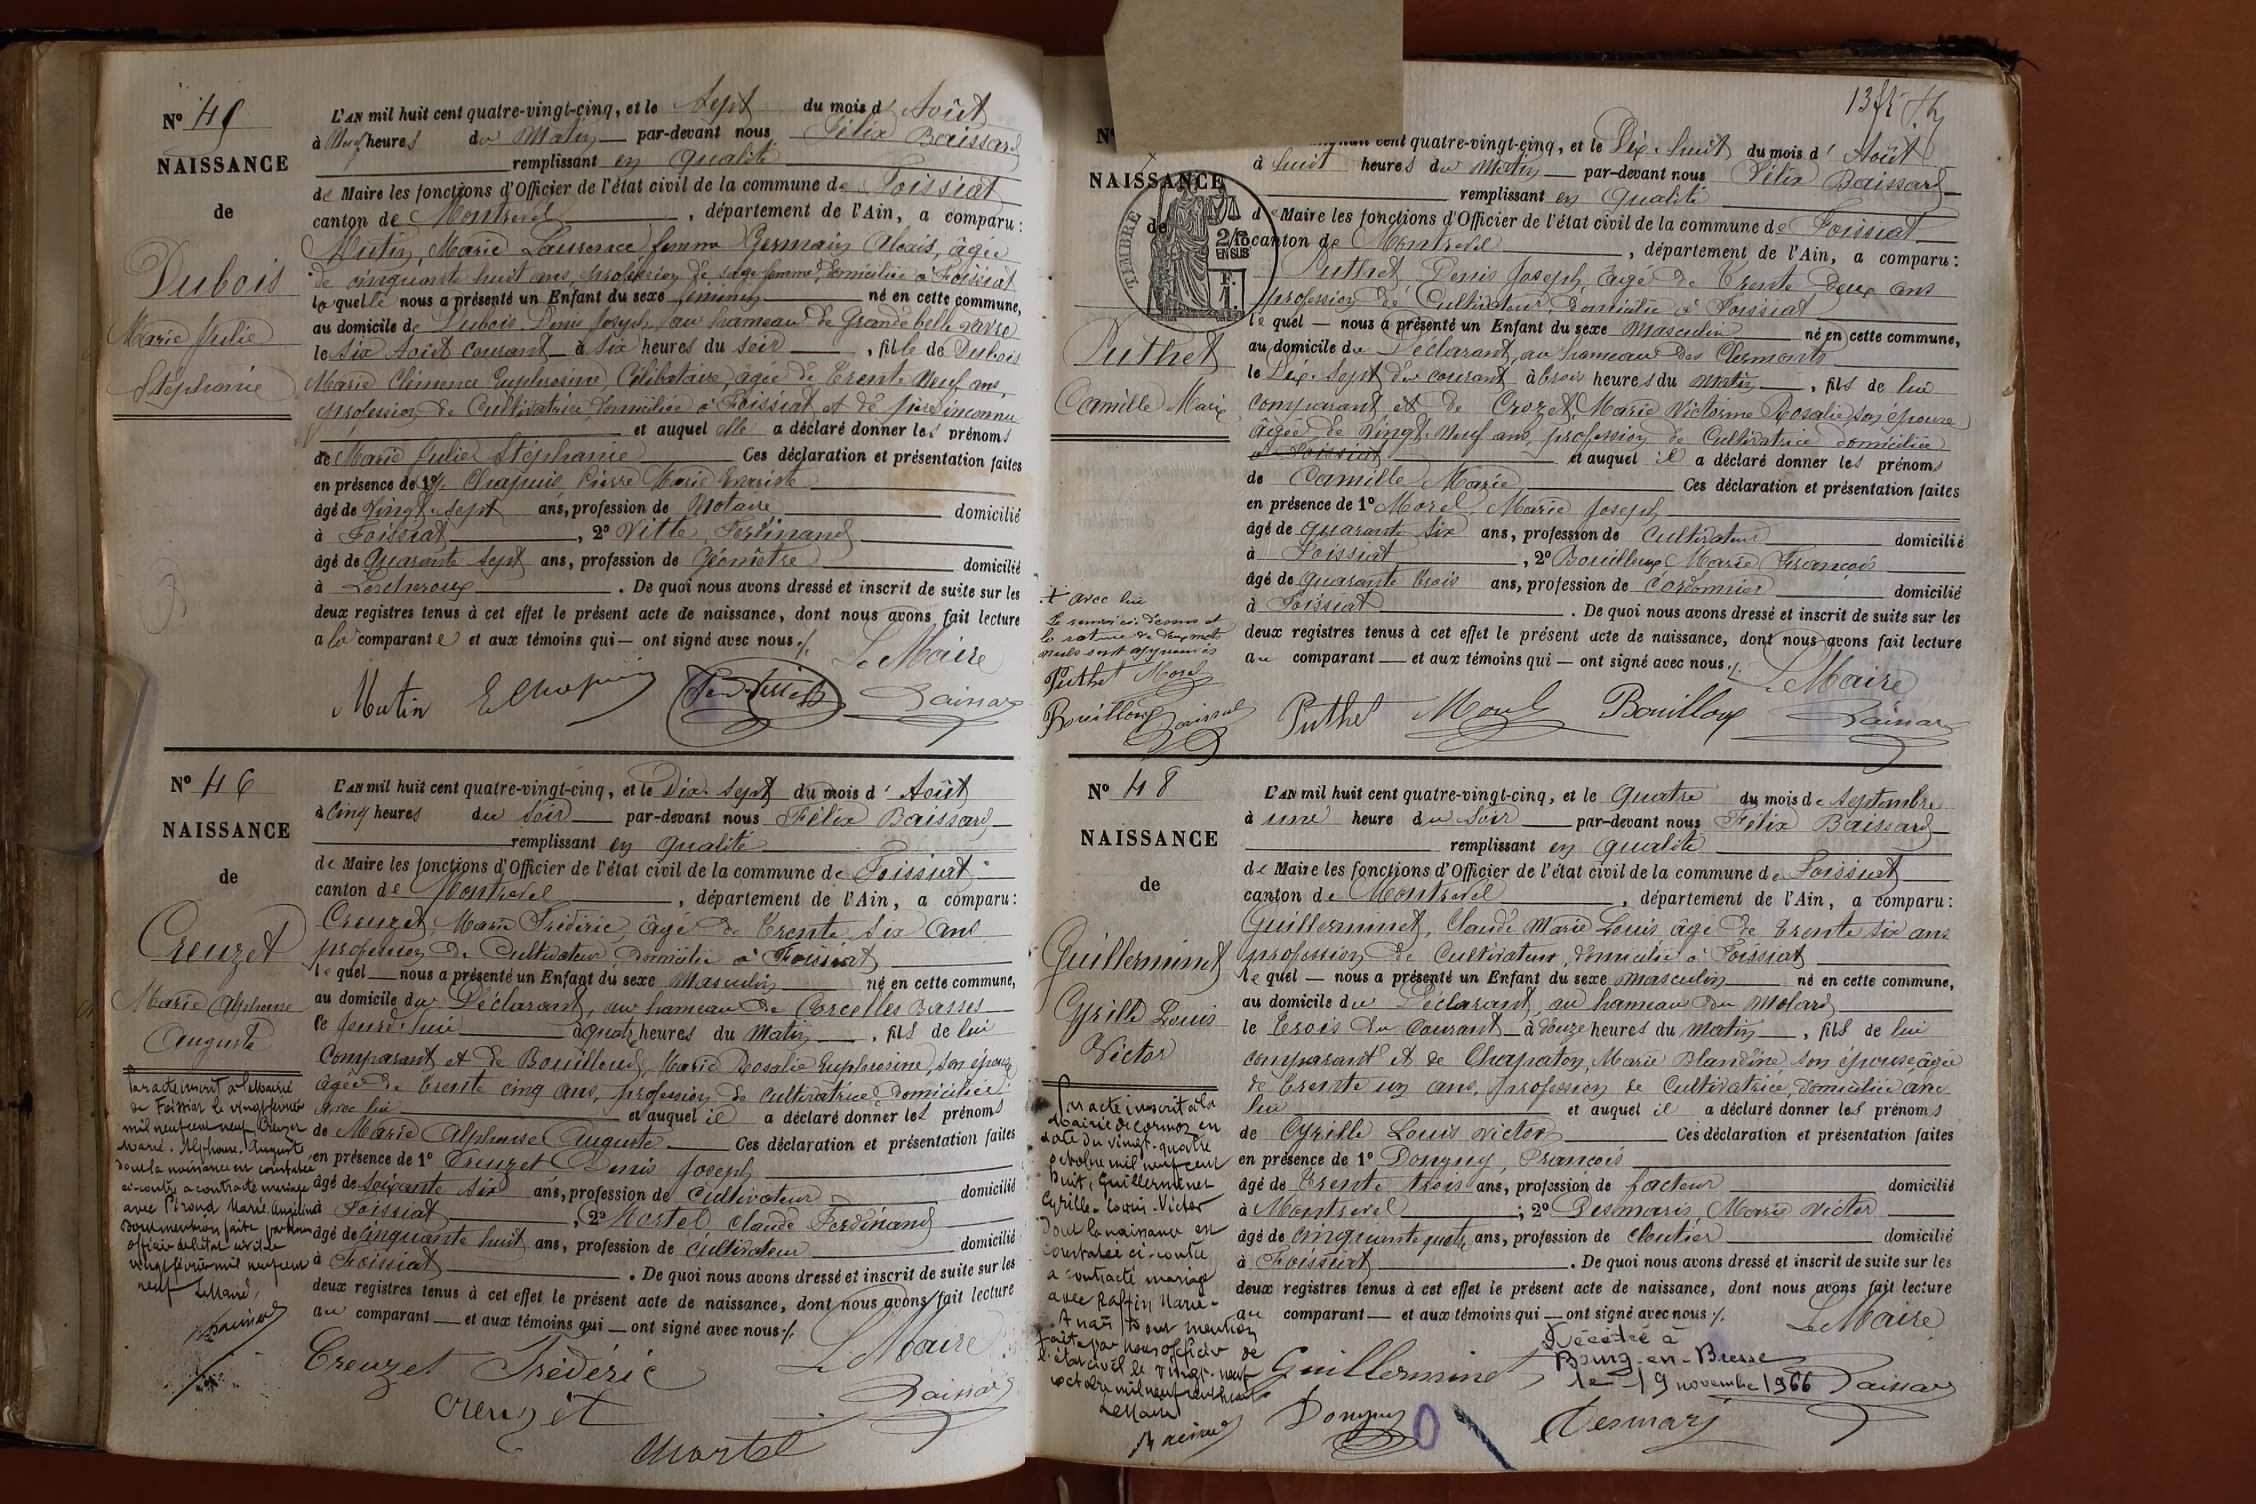 N° 45
NAISSANCE
de
Dubois
Marie Julie
Stéphanie
L'AN mil huit cent quatre-vingt-cinq, et le Sept du mois d' Août
à Neuf heures du Matin par-devant nous Félix Baissard
remplissant en qualité
de Maire les fonctions d'Officier de l'état civil de la commune de Foissiat
canton de Montrevel, département de l'Ain, a comparu :
Mutin, Marie Laurence femme Germain Alexis, âgée
de cinquante huit ans, profession de sage femme, domiciliée à Foissiat
laquelle nous a présenté un Enfant du sexe féminin né en cette commune,
au domicile de Dubois Denis Joseph, au hameau de Grande belle
le six Août courant à six heures du soir, fille de Dubois
Marie Clémence Euphrosine, Célibataire, âgée de trente Neuf ans,
profession de Cultivatrice domiciliée à Foissiat et de père inconnu
et auquel elle a déclaré donner les prénoms
de Marie Julie Stéphanie Ces déclaration et présentation faites
en présence de 1° Chapuis Pierre Marie Evariste
âgé de Vingt-sept ans, profession de Notaire domicilié
à Foissiat, 2° Vitte, Ferdinand
âgé de Quarante sept ans, profession de Géomètre domicilié
à Lescheroux. De quoi nous avons dressé et inscrit de suite sur les
deux registres tenus à cet effet le présent acte de naissance, dont nous avons fait lecture
a la comparante et aux témoins qui — ont signé avec nous ./.
Le Maire
Mutin E Chapuis Baissard
N° 46
NAISSANCE
de
Creuzet
Marie Alphonse
Auguste
Par acte inscrit à la Mairie
de Foissiat le vingt février
mil neuf cent neuf Creuzet
Marie-Alphonse-Auguste
dont la naissance est constatée
ci-contre a contracté mariage
avec Piroud Marie-Angelina
Dont mention faite par nous
officier de l'état civil le
vingt février mil neuf cent
neuf Le Maire,
L'AN mil huit cent quatre-vingt-cinq, et le Dix-Sept du mois d' Août
à Cinq heures du Soir par-devant nous Félix Baissard
remplissant en qualité
de Maire les fonctions d'Officier de l'état civil de la commune de Foissiat
canton de Montrevel, département de l'Ain, a comparu :
Creuzet, Marie Frédéric, âgé de Trente Six ans
profession de Cultivateur, Domicilié à Foissiat
lequel — nous a présenté un Enfant du sexe Masculin né en cette commune,
au domicile du Déclarant, au hameau de Corcelles Basses
ce jourd'hui à quatre heures du Matin, fils de lui
Comparant et de Bouilloux, Marie Rosalie Euphrosine, son épouse
âgée de trente cinq ans, profession de cultivatrice domiciliée
avec lui et auquel il a déclaré donner les prénoms
de Marie Alphonse Auguste Ces déclaration et présentation faites
en présence de 1° Creuzet Denis Joseph
âgé de soixante six ans, profession de Cultivateur domicilié
à Foissiat, 2° Mortel Claude Ferdinand
âgé de cinquante huit ans, profession de Cultivateur domicilié
à Foissiat. De quoi nous avons dressé et inscrit de suite sur les
deux registres tenus à cet effet le présent acte de naissance, dont nous avons fait lecture
au comparant — et aux témoins qui — ont signé avec nous ./.
Le Maire
Creuzet Frédéric
Baissard
Creuzet
Mortel
N°
NAISSANCE
de
TIMBRE
2/10
EN SUS
F.
1.
Puthet
Camille Marie
cent quatre-vingt-cinq, et le Dix-huit du mois d' Août
à huit heures du Matin par-devant nous Félix Baissard
remplissant en qualité
de Maire les fonctions d'Officier de l'état civil de la commune de Foissiat
canton de Montrevel, département de l'Ain, a comparu :
Puthet, Denis Joseph, âgé de Trente deux ans
profession de Cultivateur, domicilié à Foissiat
lequel — nous a présenté un Enfant du sexe Masculin né en cette commune,
au domicile du Déclarant, au hameau des Clermonts
le Dix-Sept du courant à trois heures du matin, fils de lui
comparant et de Crozet, Marie Victorine Rosalie, son épouse
âgée de Vingt Neuf ans, profession de Cultivatrice domiciliée
à Foissiat et auquel il a déclaré donner les prénoms
de Camille Marie Ces déclaration et présentation faites
en présence de 1° Morel, Marie Joseph
âgé de quarante six ans, profession de Cultivateur domicilié
à Foissiat, 2° Bouilloux Marie François
âgé de quarante trois ans, profession de Cordonnier domicilié
à Foissiat. De quoi nous avons dressé et inscrit de suite sur les
deux registres tenus à cet effet le présent acte de naissance, dont nous avons fait lecture
au comparant — et aux témoins qui — ont signé avec nous ./.
+ avec lui
Le renvoi ci-dessus et
la rature de deux mots
nuls sont approuvés
Puthet Morel
Bouilloux Baissard
Le Maire
Puthet Morel Bouilloux Baissard
N° 48
NAISSANCE
de
Guillerminet
Cyrille Louis
Victor
Par acte inscrit à la
Mairie de Cormoz en
date du vingt-quatre
octobre mil neuf cent
huit, Guillerminet
Cyrille-Louis-Victor
dont la naissance est
constatée ci-contre
a contracté mariage
avec Raffin Marie-
Anaïs Dont mention
faite par nous officier de
l'état civil le vingt-neuf
octobre mil neuf cent huit
Le Maire
L'AN mil huit cent quatre-vingt-cinq, et le Quatre du mois de Septembre
à une heure du Soir par-devant nous Félix Baissard
remplissant en qualité
de Maire les fonctions d'Officier de l'état civil de la commune de Foissiat
canton de Montrevel, département de l'Ain, a comparu :
Guillerminet, Claude Marie Louis âgé de trente six ans
profession de Cultivateur, domicilié à Foissiat
lequel — nous a présenté un Enfant du sexe masculin né en cette commune,
au domicile du Déclarant, au hameau du Molard
le trois du courant à douze heures du matin, fils de lui
comparant et de Chapaton, Marie Blandine son épouse âgée
de trente un ans, profession de Cultivatrice, domiciliée avec
lui et auquel il a déclaré donner les prénoms
de Cyrille Louis Victor Ces déclaration et présentation faites
en présence de 1° Donguy, François
âgé de Trente trois ans, profession de facteur domicilié
à Montrevel ; 2° Desmaris, Marie Victor
âgé de cinquante quatre ans, profession de Cloutier domicilié
à Foissiat. De quoi nous avons dressé et inscrit de suite sur les
deux registres tenus à cet effet le présent acte de naissance, dont nous avons fait lecture
au comparant — et aux témoins qui — ont signé avec nous ./.
Le Maire
Décédé à
Bourg-en-Bresse
le 19 novembre 1966
Guillerminet Baissard
Donguy Desmaris